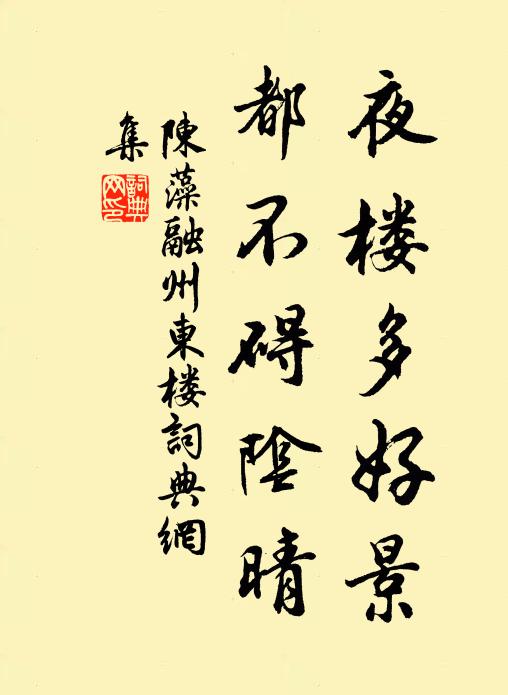 夜楼多好景
都不碍陰晴
陳藻融州東楼詞典網
集
詞典
网印